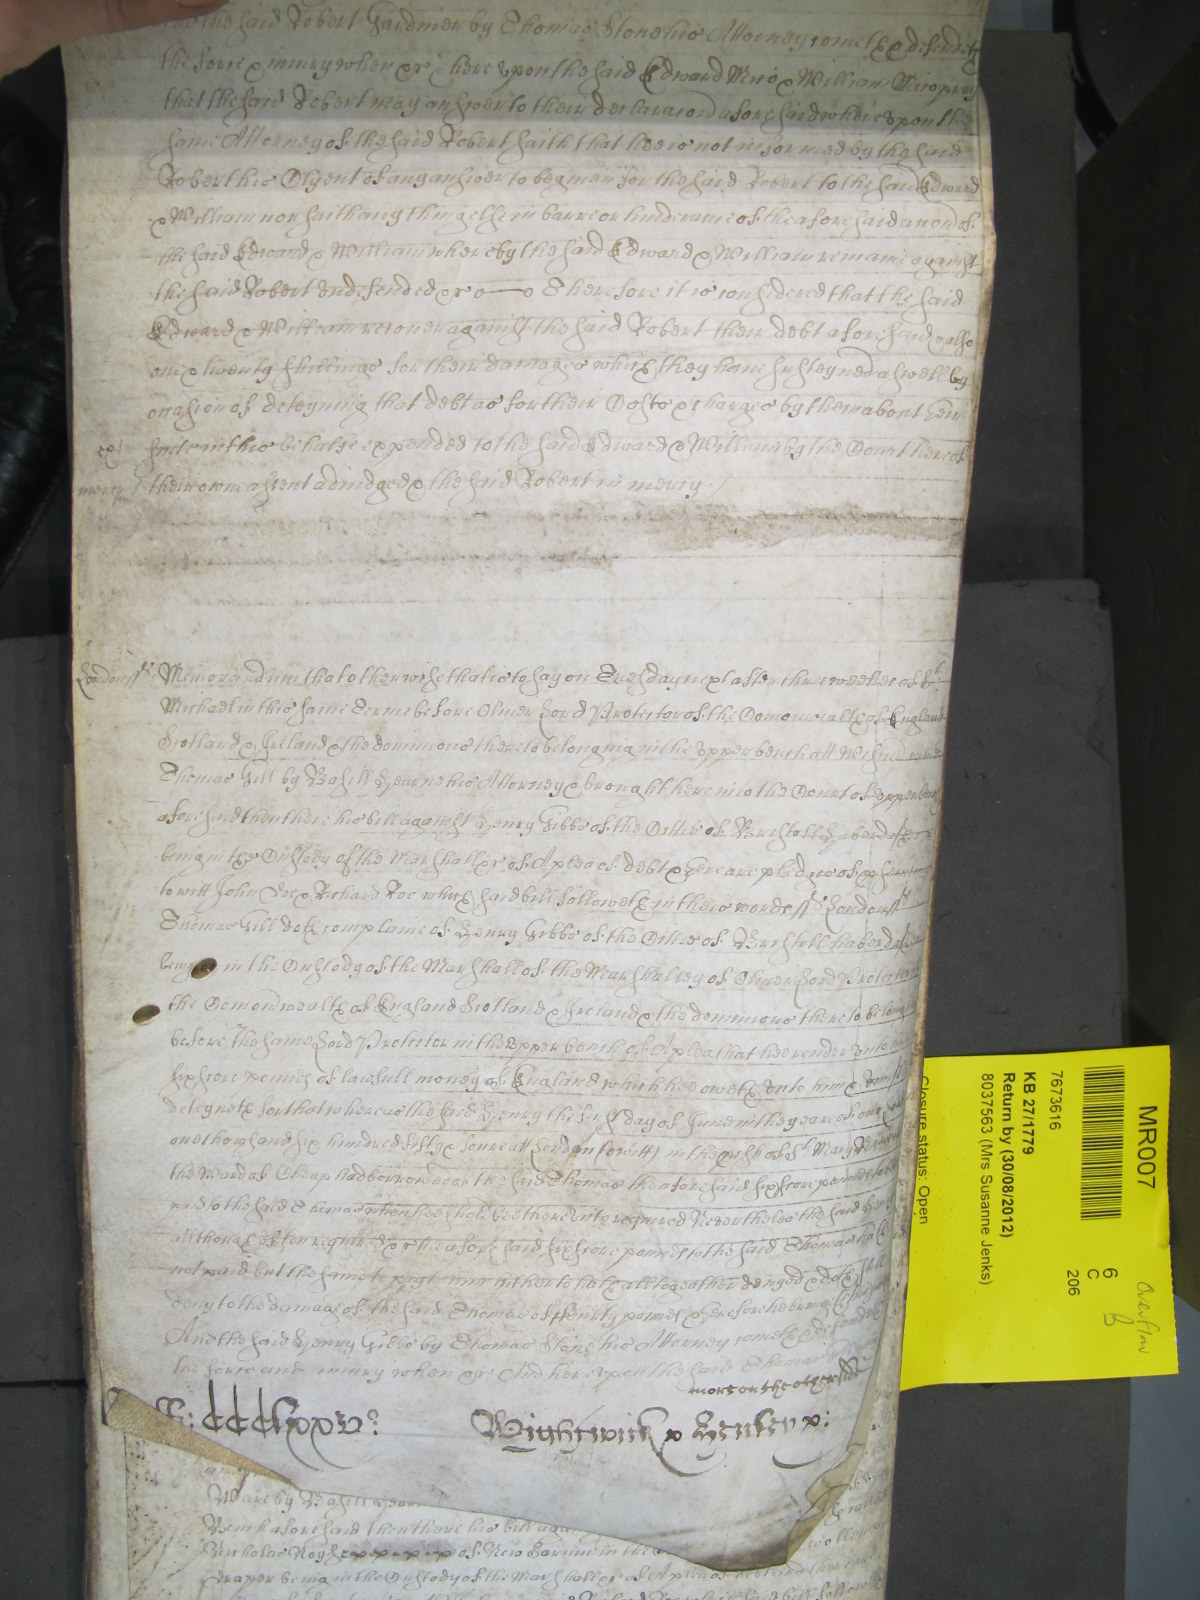 the said Robert Gardnier by Thomas Stone his Attorney cometh & defendeth
the force & iniury when &c & hereupon the said Edward Miro & William Miro pray
that the said Robert may answer to their declaracon aforesaid whereupon the
same Attorney of the said Robert saith that hee is not informed by the said
Robert his Clyent of any answer to be given for the said Robert to the said Edward
& William nor saith any thing else in barre or hinderance of the aforesaid accon of
the said Edward & William whereby the said Edward & William remaine against
the said Robert undefended &c Therefore it is considered that the said
Edward & William recover against the said Robert their debt aforesaid & also
one & twenty shillings for their damages which they have susteyned aswell by
occasion of deteyning that debt as for their Costs & charges by them about their
suite in this behalfe expended to the said Edward & William by the Court here of
their owne assent adiudged & the said Robert in mercy
mercy
London ss
Memorandum that otherwise that is to say on Tuesday next after three weekes of St
Michael in this same Terme before Oliver Lord Protector of the Comonwealth of England
Scotland & Ireland & the dominions thereto belonging in the upper bench att Westm came
Thomas Gill by Basill Hearne his Attorney & brought here into the Court of upper bench
aforesaid then there his bill against Henry Gibbs of the Cittie of Bristoll Haberdasher
being in the Custody of the Marshall &c of A plea of debt & there are pledges of
to witt John Doe & Richard Roe which said bill followeth in theis words ss London ss
Thomas Gill doth complaine of Henry Gibbs of the Cittie of Bristoll haberdasher
being in the Custody of the Marshall of the Marshalsey of Oliver Lord Protector
the Comonwealth of England Scotland & Ireland & the dominions thereto belonging
before the same Lord Protector in the upper bench of A plea that hee render unto him
sixscore pounds of lawfull money of England which hee oweth unto him &
deteyneth for that whereas the said Henry the day of June in the yeare of our
one thowsand six hundred fifty & foure att London to witt in the parish of St Mary
the Ward of Cheap had borrowed of the said Thomas the aforesaid sixscore pounds
paid to the said Thomas when hee should bee thereunto required Neverthelesse the said Henry
although often required &c the aforesaid sixscore pounds to the said Thomas hath
not paid but the same to pay him hitherto hath alltogeather denyed & doth still
deny to the damage of the said Thomas of twenty pounds & therefore he bringeth
And the said Henry Gibbs by Thomas Stone his Attorney cometh & defendeth
the force and iniury when &c And hereupon the said Thomas
more on the other side
CCCClxxv
Wightwick &
Ware by Basill Hearne
Bench aforesaid then there his bill against
Nicholas of New Sarum in the
draper being in the Custody of the Marshall &c of A plea of debt and there
MR007
7673616
KB 27/1779
Return by (30/08/2012)
8037563 (Mrs Susanne Jenks)
Closure status: Open
6
C
206
Overflow
B